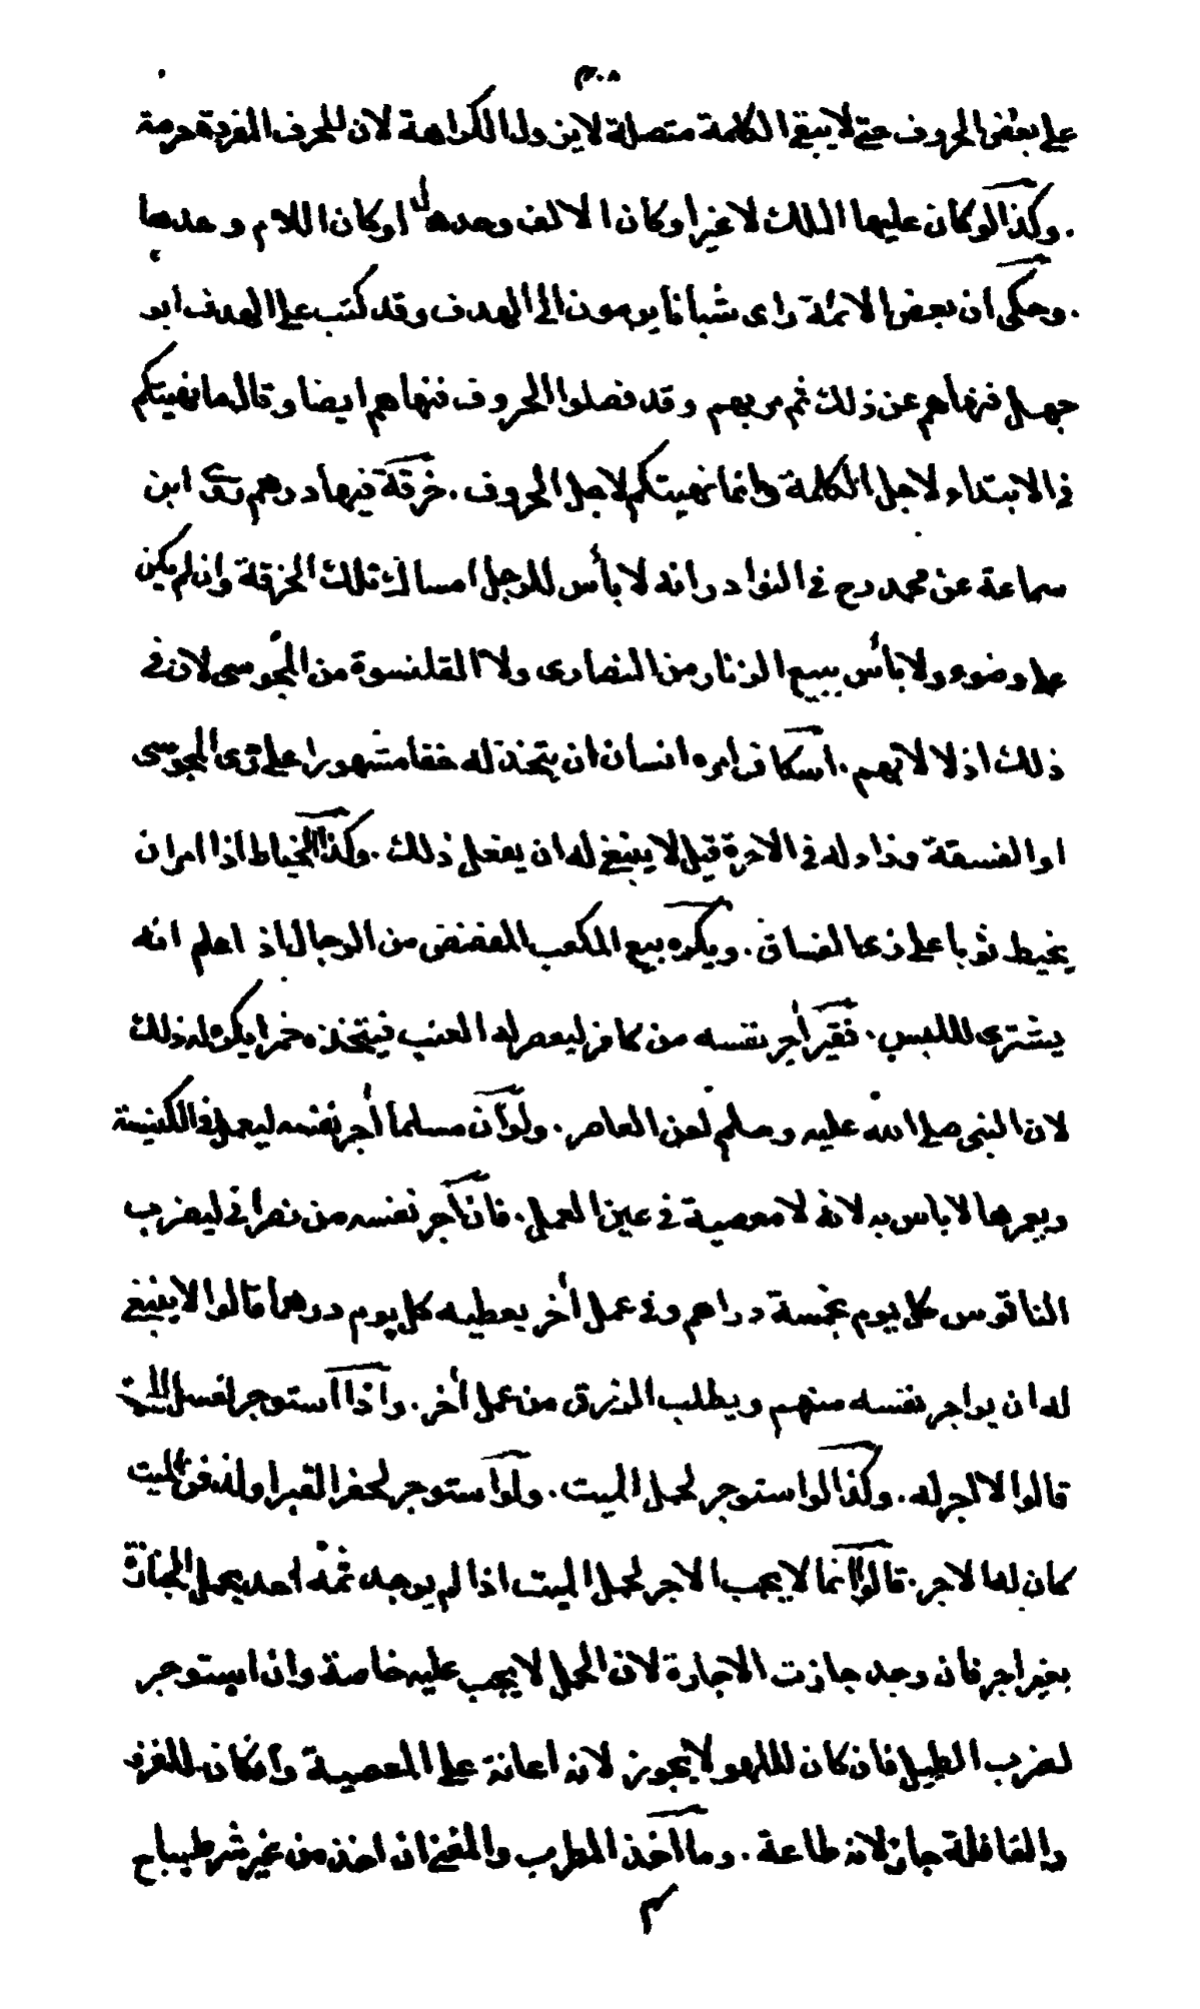 ٣٠٨
على بعض الحروف حتى لا يبقى الكلمة متصلة لا يزول الكراهة لان للحرف المفردة حرمة
. وكذا لو كان عليها الملك لا غير او كان الالف وحدها او كان اللام وحدها
. وحكى ان بعض الائمة راى شبانا يرمون الى الهدف وقد كتب على الهدف ابو
جهل فنهاهم عن ذلك ثم مر بهم وقد فصلوا الحروف فنهاهم ايضا وقال ما نهيتكم
فى الابتداء لاجل الكلمة وانما نهيتكم لاجل الحروف . خرقة فيها دراهم روى ابن
سماعة عن محمد رح فى النوادر انه لا بأس للرجل امساك تلك الخرقة وان لم يكن
على وضوء ولا بأس ببيع الزنار من النصارى ولا القلنسوة من المجوسى لان فى
ذلك اذلالا لهم . اسكاف امره انسان ان يتخذ له خفا مشهورا على زى المجوسى
او الفسقة وزاد له فى الاجرة قيل لا ينبغى له ان يفعل ذلك . وكذا الخياط اذا امر ان
يخيط ثوبا على زى الفساق . ويكره بيع المكعب المفضض من الرجال اذ اعلم انه
يشترى لللبس . فقير أجر نفسه من كافر ليعصر له العنب فيتخذه خمرا يكره له ذلك
لان النبى صلى الله عليه وسلم لعن العاصر . ولو ان مسلما أجر نفسه ليعمل فى الكنيسة
ويعمرها لا باس به لانه لا معصية فى عين العمل . فان آجر نفسه من نصرانى ليضرب
الناقوس كل يوم بخمسة دراهم وفى عمل أخر يعطيه كل يوم درهما قالوا لا ينبغى
له ان يواجر نفسه منهم ويطلب الرزق من عمل أخر . واذا استوجر لغسل الميت
قالوا لا اجر له . وكذا لو استوجر لحمل الميت . ولو استوجر لحفر القبر او لدفن الميت
كان له الاجر . قالوا انما لا يجب الاجر لحمل الميت اذا لم يوجد ثمه احد يحمل الجنازة
بغير اجر فان وجد جازت الاجارة لان الحمل لا يجب عليه خاصة وان استوجر
لضرب الطبل فان كان لللهو لا يجوز لانه اعانة على المعصية وان كان للغزو
والقافلة جاز لانه طاعة . وما اخذ المطرب والمغنى ان اخذ من غير شرط يباح